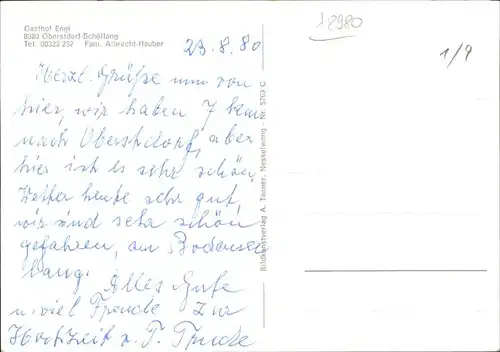 Gasthof Engl
8980 Oberstdorf-Schöllang
Tel. 08323-232 Fam. Albrecht-Hauber
12980
1/9
23.8.80
Herzl. Grüße nun von
hier, wir haben 7 km
nach Oberstdorf, aber
hier ist es sehr schön
Wetter heute sehr gut,
wir sind sehr schön
gefahren, am Bodensee
lang. Alles Gute
u. viel Freude zur
Hochzeit v. T. Trude
Bildkunstverlag A. Tanner, Nesselwang - Nr. 5769 C